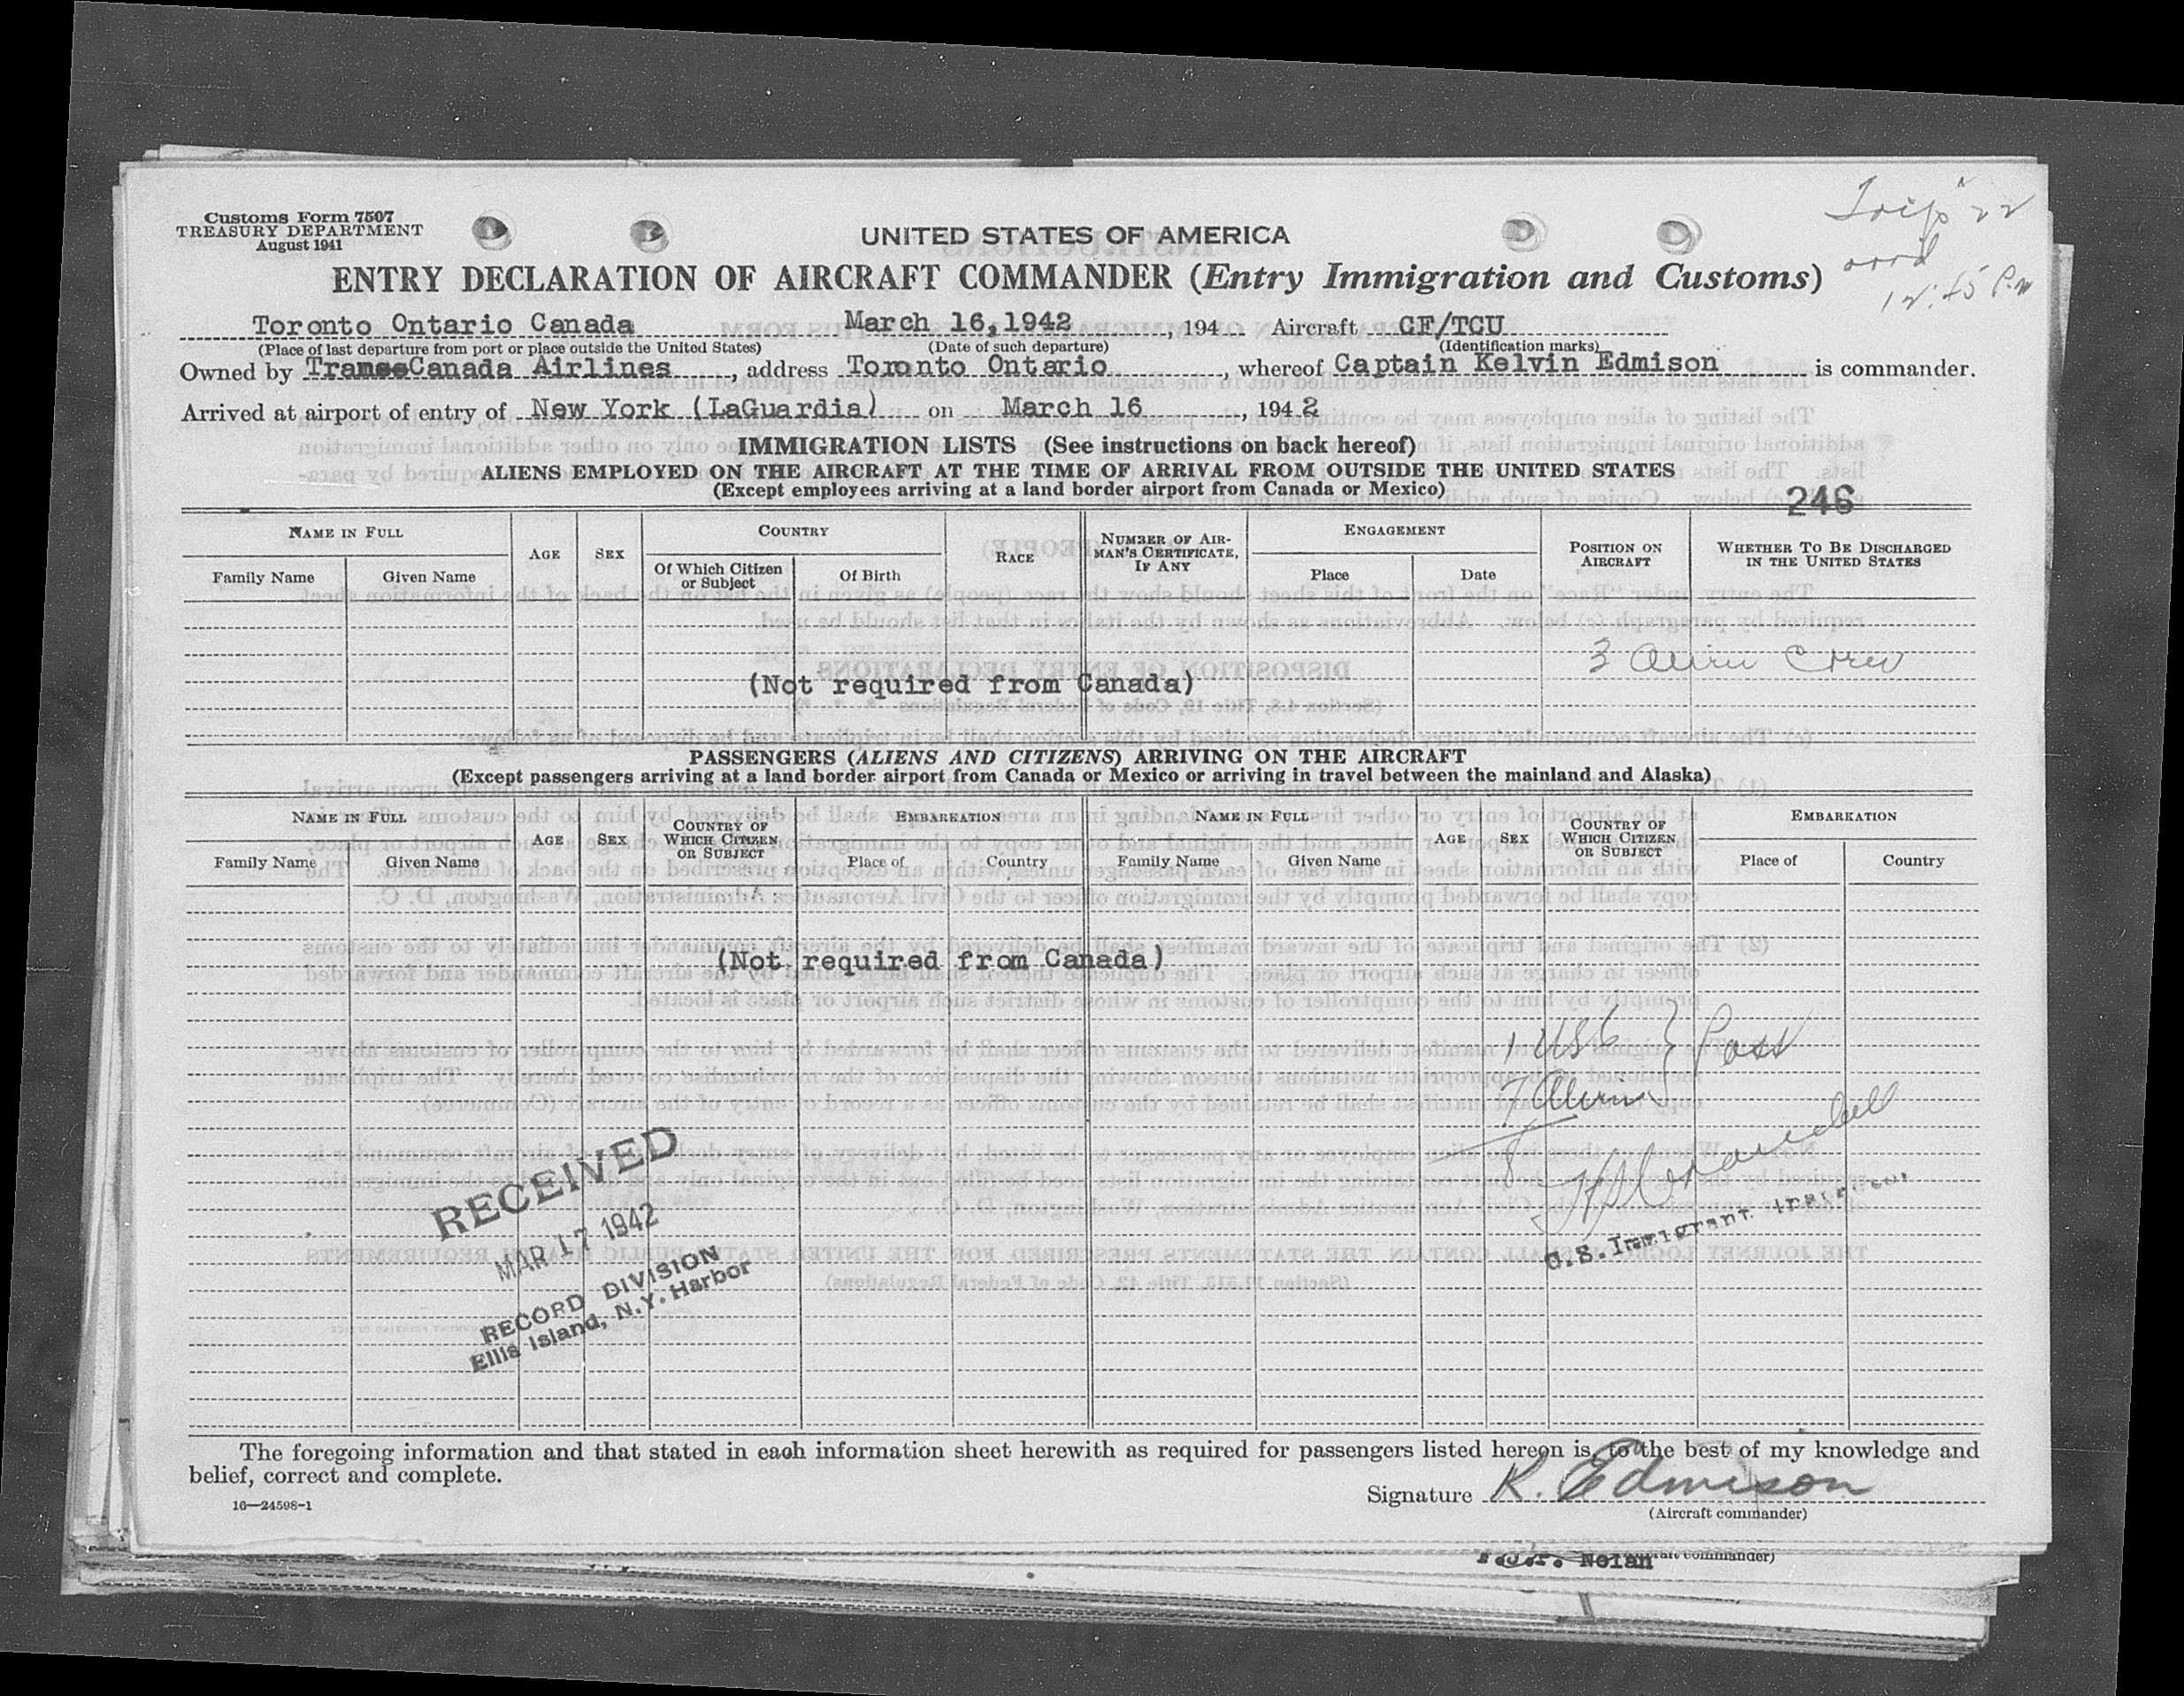 Customs Form 7507
TREASURY DEPARTMENT
August 1941
UNITED STATES OF AMERICA
Trip 22
arrd
12:45 P.m
ENTRY DECLARATION OF AIRCRAFT COMMANDER (Entry Immigration and Customs)
Toronto Ontario Canada March 16,1942, 194 Aircraft CF/TCU
(Place of last departure from port or place outside the United States) (Date of such departure) (Identification marks)
Owned by Trans Canada Airlines, address Toronto Ontario, whereof Captain Kelvin Edmison is commander.
Arrived at airport of entry of New York (LaGuardia) on March 16, 1942
IMMIGRATION LISTS (See instructions on back hereof)
ALIENS EMPLOYED ON THE AIRCRAFT AT THE TIME OF ARRIVAL FROM OUTSIDE THE UNITED STATES
(Except employees arriving at a land border airport from Canada or Mexico)
246
NAME IN FULL AGE SEX COUNTRY RACE NUMBER OF AIRMAN'S CERTIFICATE, IF ANY ENGAGEMENT POSITION ON AIRCRAFT WHETHER TO BE DISCHARGED IN THE UNITED STATES
Family Name Given Name Of Which Citizen or Subject Of Birth Place Date
3 Alien Crew
(Not required from Canada)
PASSENGERS (ALIENS AND CITIZENS) ARRIVING ON THE AIRCRAFT
(Except passengers arriving at a land border airport from Canada or Mexico or arriving in travel between the mainland and Alaska)
NAME IN FULL AGE SEX COUNTRY OF WHICH CITIZEN OR SUBJECT EMBARKATION NAME IN FULL AGE SEX COUNTRY OF WHICH CITIZEN OR SUBJECT EMBARKATION
Family Name Given Name Place of Country Family Name Given Name Place of Country
(Not required from Canada)
1 USC } Pass
7 Aliens
8
U.S. Immigrant Inspector.
RECEIVED
MAR 17 1942
RECORD DIVISION
Ellis Island, N.Y. Harbor
The foregoing information and that stated in each information sheet herewith as required for passengers listed hereon is, to the best of my knowledge and
belief, correct and complete.
Signature K. Edmison
16—24598-1
(Aircraft commander)
Nolan
commander)